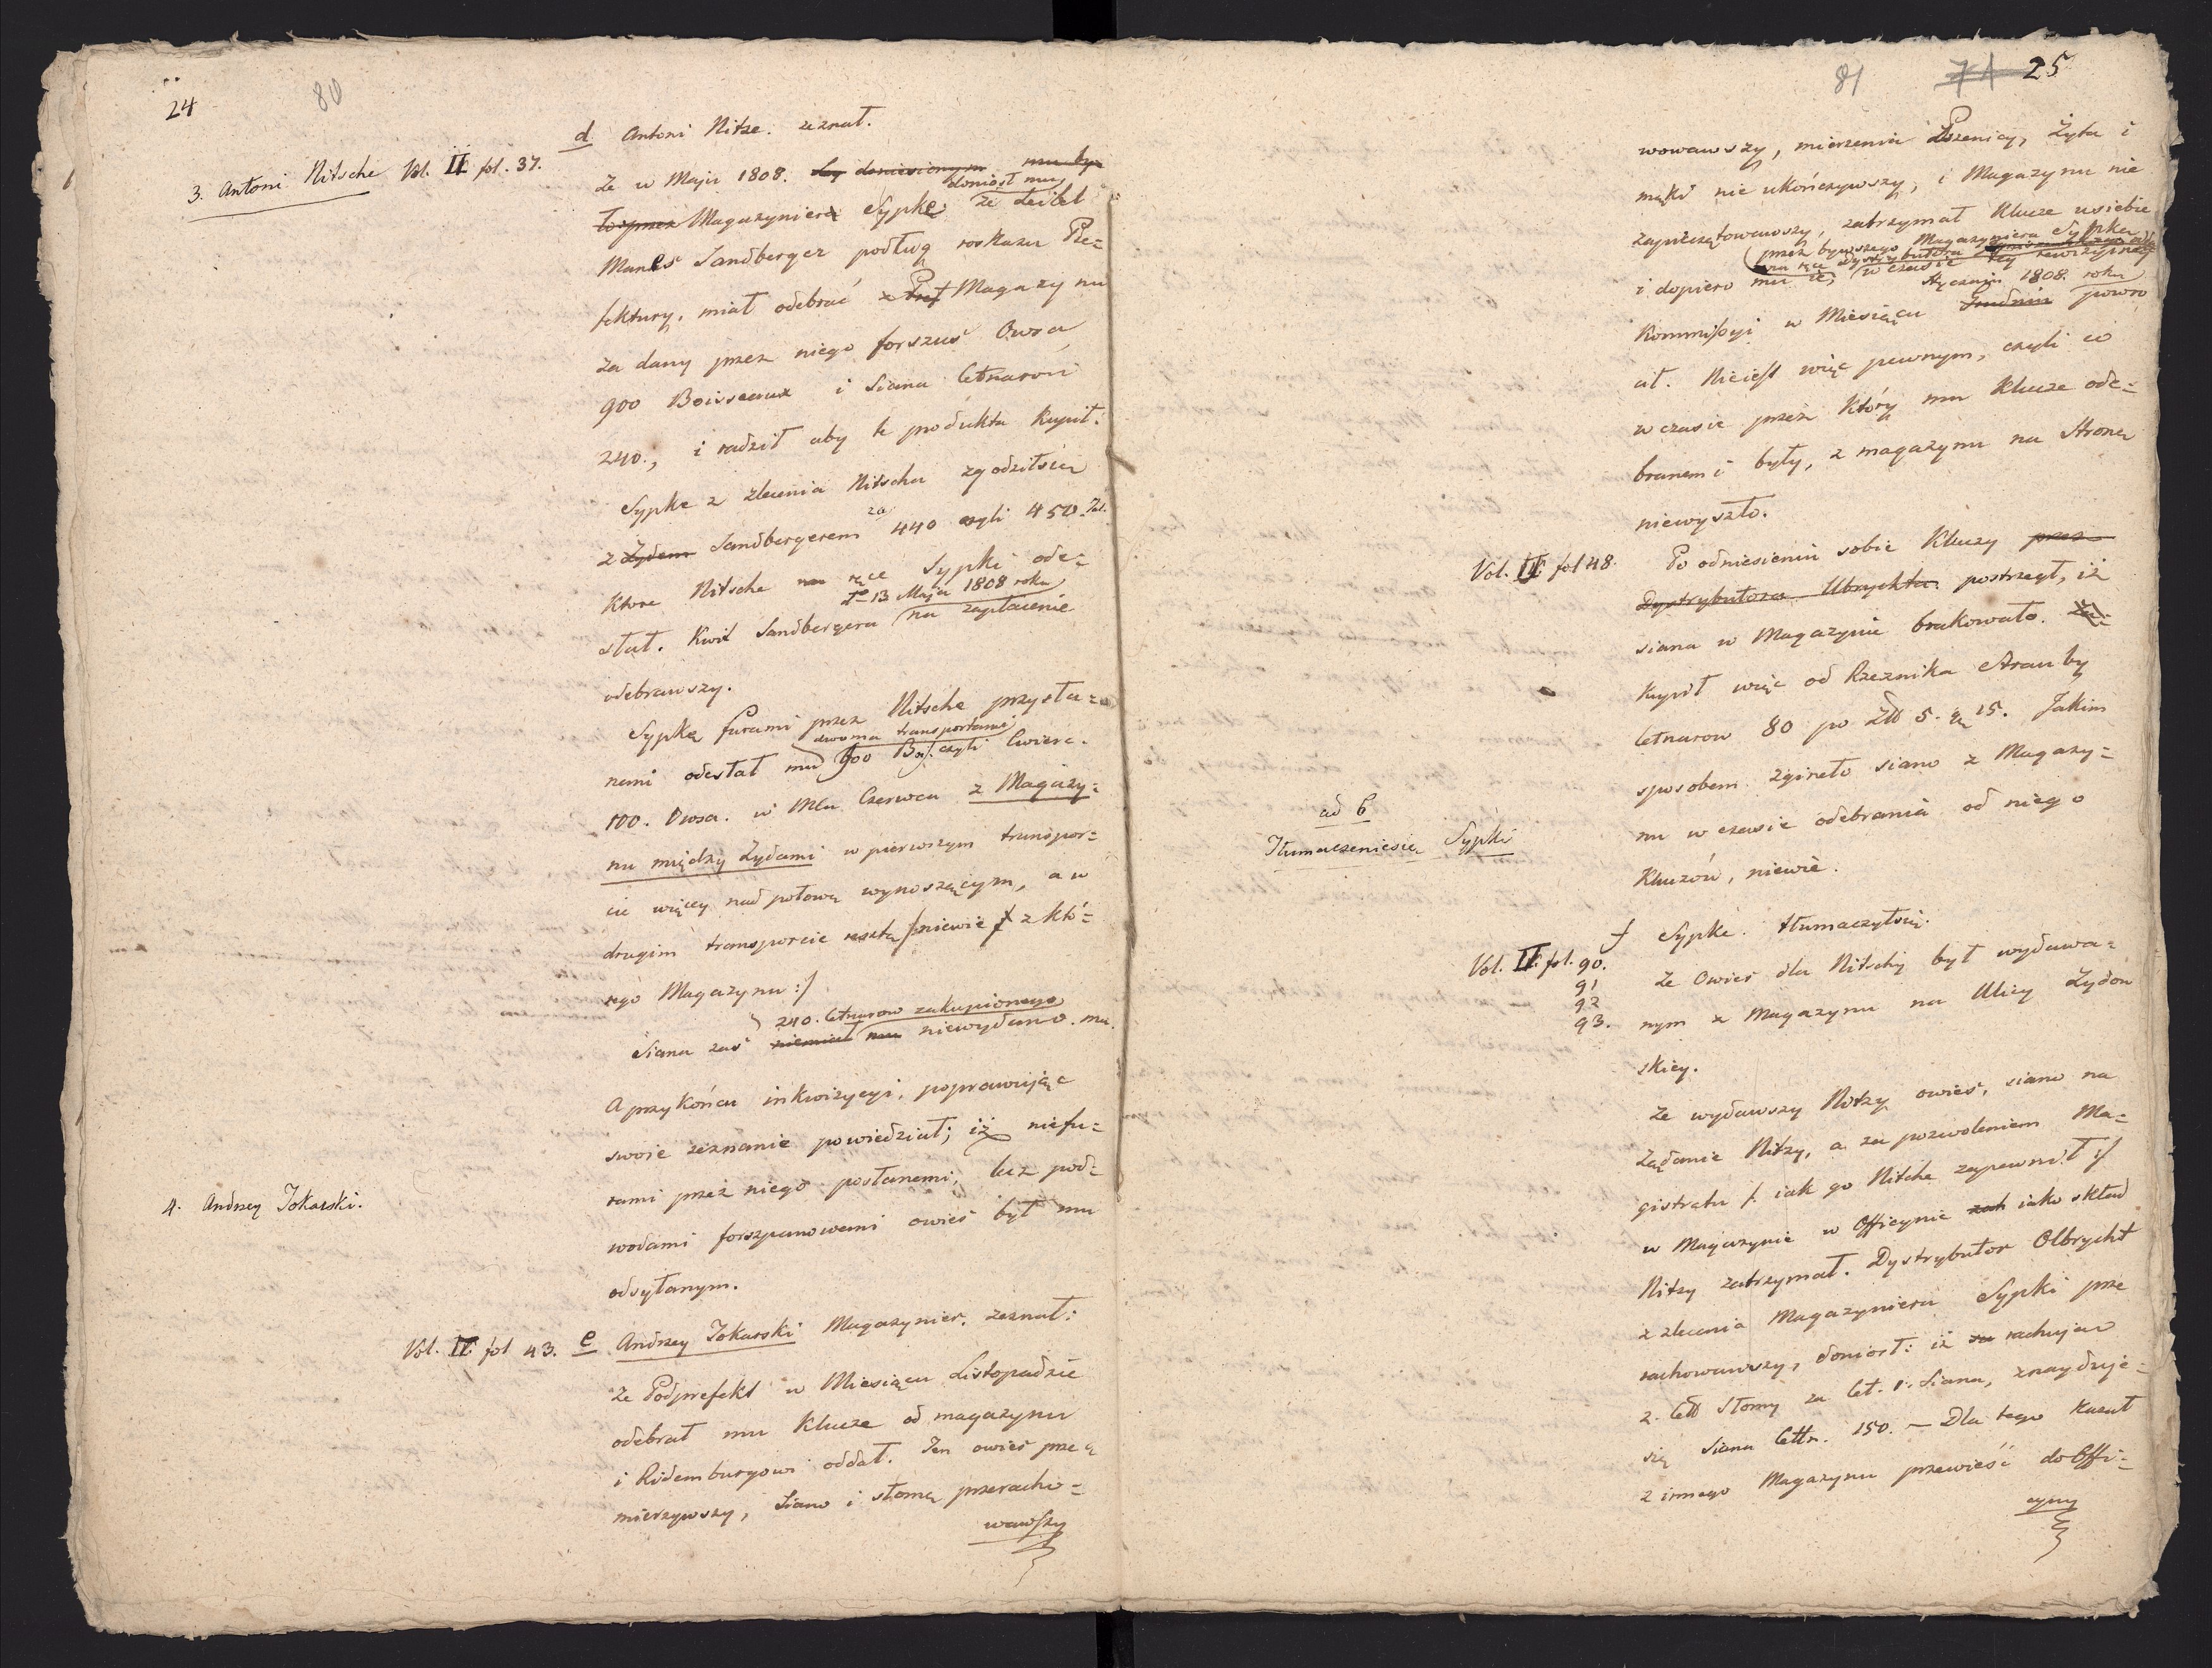 24
80
d Antoni Nitze. zeznał.
3. Antoni Nitsche Vol. II fol. 37.
że w Maju 1808. donieśionym mu by
doniosł mu,
ło przez Magazyniera Sypke że Leibel
Manes Sandberger podług roskazu Pre=
fektury, miał odebrać z Magazynu
za dany przez niego forszus Owsa
900 Boisseaux i Siana Cetnarów
240., i radził aby te produkta kupił.
Sypke z zlecenia Nitscha zgodziłsię
z Żydem Sandbergerem za 440 czyli 450. Tal.
Ktore Nitsche na ręce Sypki ode=
dto 13 Maja 1808 roku
słał. Kwit Sandbergera na zapłacenie
odebrawszy.
Sypke furami przez Nitsche przysła=
dwoma transportami
nemi odesłał mu 900 Bois. czyli Cwierc.
100. Owsa. w Mcu Czerwcu z Magazy=
nu między Żydami w pierwszym transpor=
cie więcy nad połową wynoszącym, a w
drugim transporcie reszta /: niewie z któ=
rego Magazynu :/
240. Cetnarow zakupionego
Siana zaś niemiał mu niewydano. mu.
A przy Końcu inkwizycyi, poprawując
swoie zeznanie powiedział; iż niefu=
rami przez niego posłanemi, lecz pod=
wodami forszpanowemi owies był mu
odsyłanym.
4. Andrzey Tokarski.
Vol. II fol 43. e Andrzey Tokarski Magazynier, zeznał:
że Podprefekt w Miesiącu Listopadzie
odebrał mu Klucze od magazynu
i Ridemburgowi oddał. Ten owies prze
mierzywszy, Siano i słomę przeracho=
wawszy
81 71 25
wowawszy, mierzenia Pszenicy, Żyta i
mąki nie ukończywszy, i Magazynu nie
zapieczętowawszy, zatrzymał Klucze usiebie
przez bywszego Magazyniera Sypke
i dopiero mu ie, w czasie rewizyiney
Styczniu 1808. roku
Kommissyi w Miesiącu Grudniu powró
cił. Nieiest więc pewnym, czyli co
w czasie przez Który mu Klucze ode=
branemi były, z magazynu na Stronę
niewyszło.
Vol. II fol 48. Po odniesieniu sobie Kluczy przez
Dystrybutora Ulbrychta postrzegł, iż
siana w Magazynie brakowało. Za=
Kupił więc od Rzeznika Strauby
Cetnarow 80 po Zł 5. gr 15. Jakim
sposobem zgineło siano z Magazy=
nu w czasie odebrania od niego
Kluczów, niewie.
ad 6
Tłumaczeniesię Sypki
f Sypke. tłumaczyłsię.
Vol. II. fol. 90.
91
92
93.
że Owies dla Nitschy był wydawa=
nym z Magazynu na Ulicy Żydow
skiey.
że wydawszy Nitzy owies, siano na
Żądanie Nitzy, a za pozwoleniem Ma=
gistratu /: iak go Nitche zapewnił :/
w Magazynie w Officynie iako skład
Nitzy zatrzymał. Dystrybutor Olbrycht
z zlecenia Magazyniera Sypki prze
rachowawszy, doniosł: iż rachując
2. Cetn Słomy za Cet. 1. Siana, znayduje=
się Siana Cettn. 150. — Dla tego Kazał
z innego Magazynu przewieść do Offi=
cyny